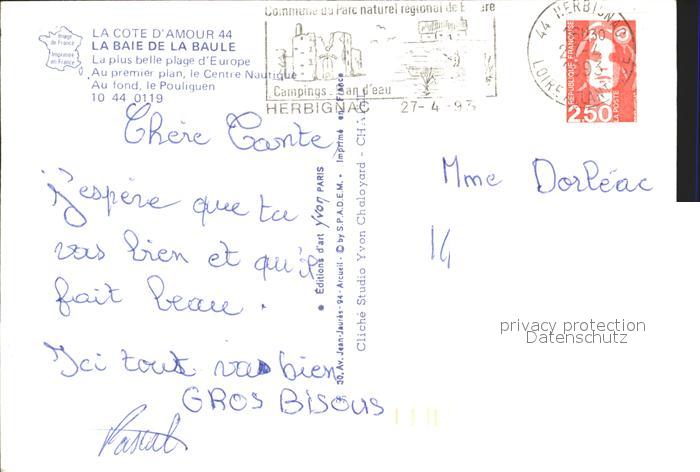 Image
de France
Imprimée
en France
LA COTE D'AMOUR 44
LA BAIE DE LA BAULE
La plus belle plage d'Europe
Au premier plan, le Centre Nautique
Au fond, le Pouliguen
10 44 0119
Commune du Parc naturel régional de
Campings
d'eau
HERBIGNAC 27-4-93
44 HERBIGNAC
93
LOIRE
REPUBLIQUE FRANÇAISE
LA POSTE
2,50
Chère Tante,
J'espère que tu
vas bien et qu'il
fait beau.
Ici tout va bien
GROS BISOUS
Pascal
Editions d'art Yvon PARIS
30, Av. Jean-Jaurès - 94 - Arcueil - © by S.P.A.D.E.M. - Imprimé en France
Cliché Studio Yvon Chaloyard - CHA
Mme Dorléac
14
privacy protection
Datenschutz